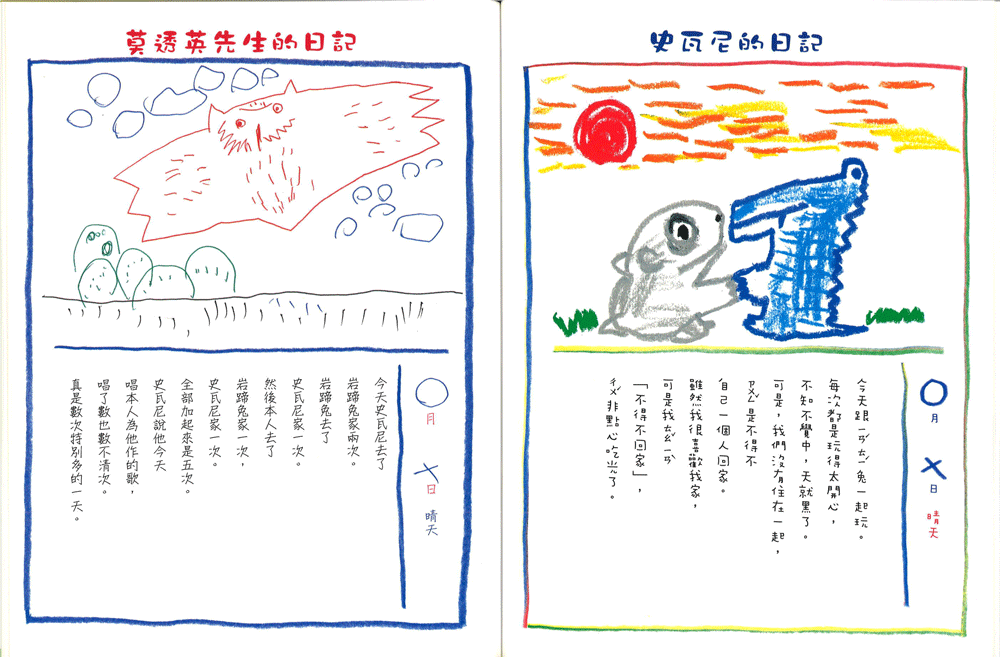 史瓦尼的日記
〇月 ×日 晴天
今天跟ㄧㄢˊㄊㄧˊ兔一起玩。
每次都是玩得太開心，
不知不覺中，天就黑了。
可是，我們沒有住在一起，
ㄗㄨㄥˇ是不得不
自己一個人回家。
雖然我很喜歡我家，
可是我ㄊㄠˇㄧㄢˋ
「不得不回家」，
ㄔㄨˊ非點心吃光了。
莫透英先生的日記
〇月 ×日 晴天
今天史瓦尼去了
岩蹄兔家兩次。
岩蹄兔去了
史瓦尼家一次。
然後本人去了
岩蹄兔家一次，
史瓦尼家一次。
全部加起來是五次。
史瓦尼說他今天
唱本人為他作的歌，
唱了數也數不清次。
真是數次特別多的一天。